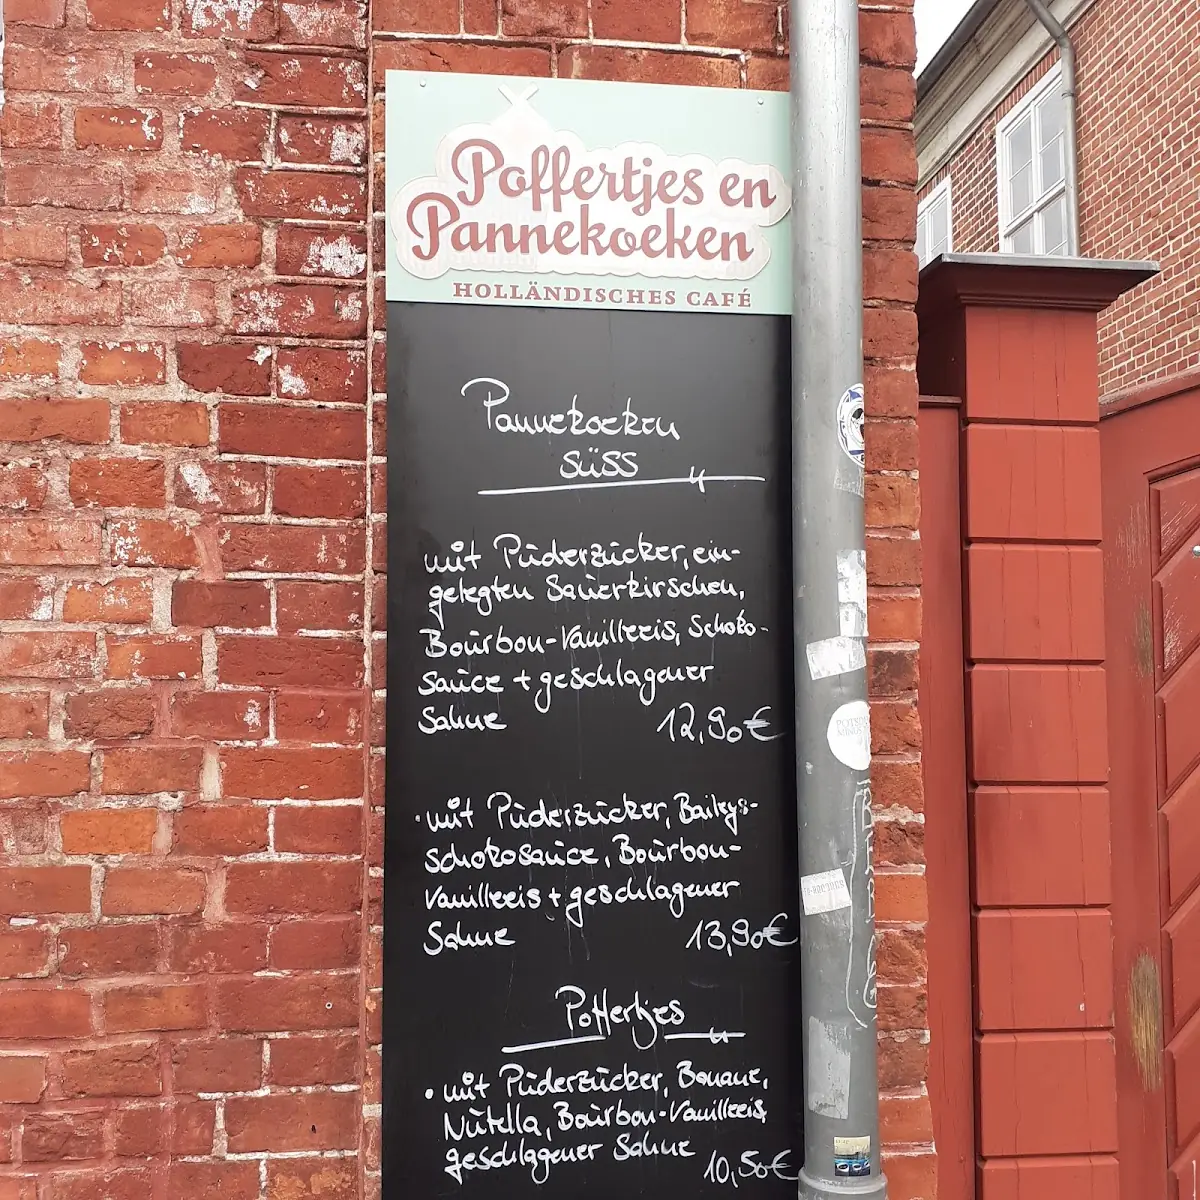 Poffertjes en
Pannekoeken
HOLLÄNDISCHES CAFÉ
Pannekoeken
süss
mit Puderzucker, ein-
gelegten Sauerkirschen,
Bourbon-Vanilleeis, Schoko-
sauce + geschlagener
Sahne 12,90€
· mit Puderzucker, Baileys-
schokosauce, Bourbon-
Vanilleeis + geschlagener
Sahne 13,90€
Poffertjes
• mit Puderzucker, Banane,
Nutella, Bourbon-Vanilleeis,
geschlagener Sahne
10,50€